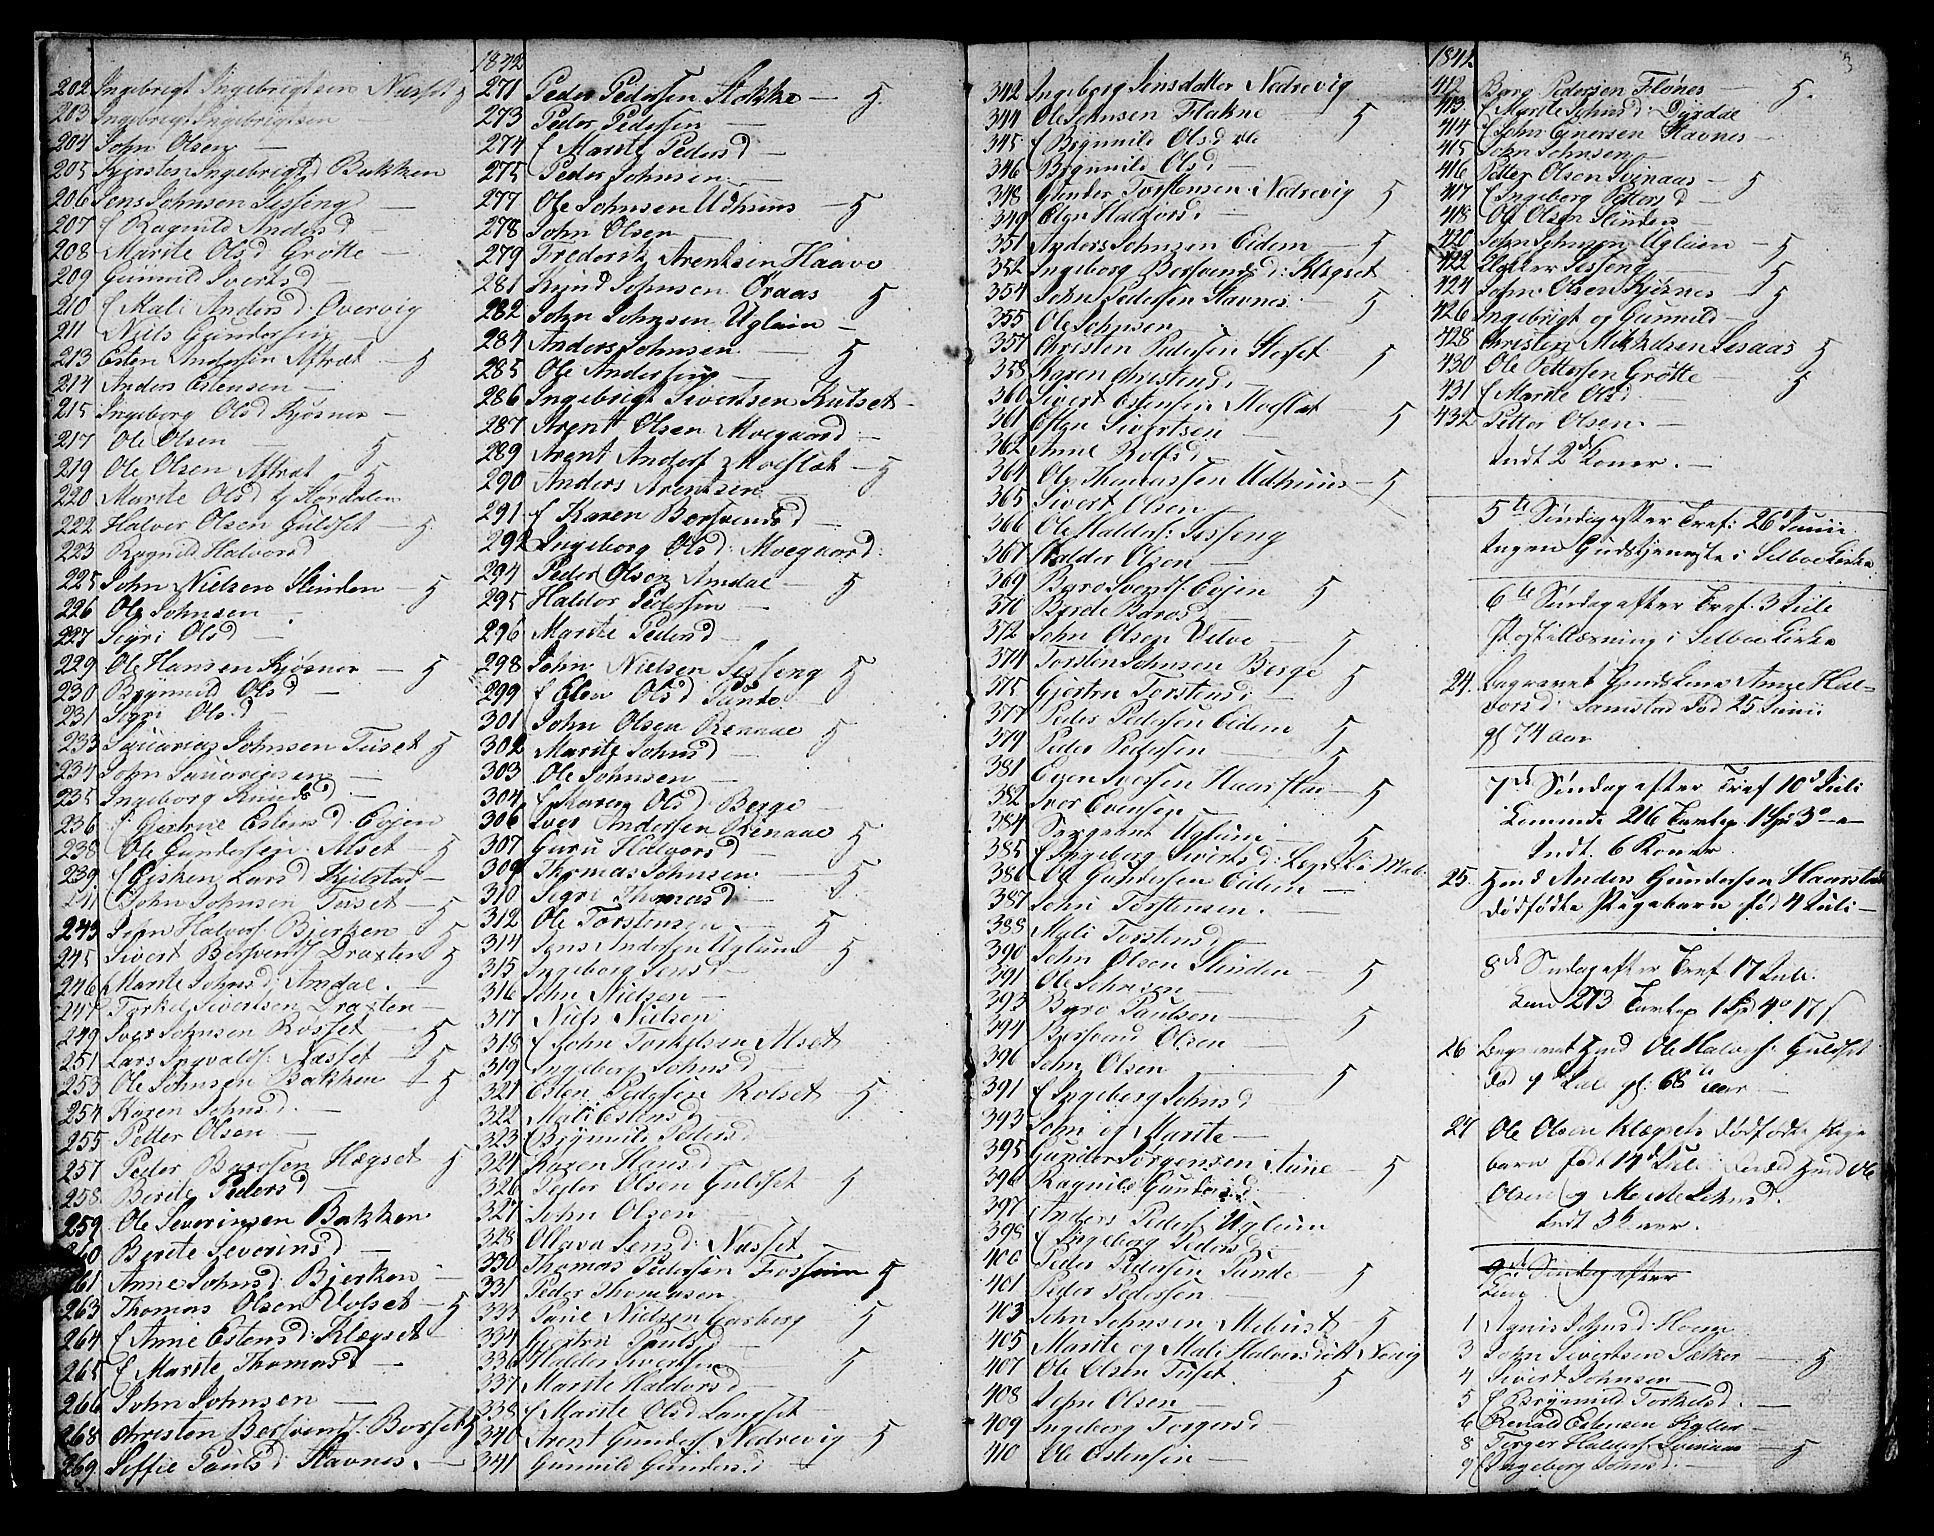 202 Ingebrigt Ingebrigtsen Næsset 5
203 Ingebrigt Ingebrigtsen
204 John Olsen —
205 Kjersten Ingebrigtd Bakken
206 Jens Johnsen Sesseng —
207 f Ragnild Andersd —
208 Marite Olsd Grøtte —
209 Gunnild Sivertsd —
210 f Mali Andersd: Overvig
211 Niels Gundersen —
213 Esten Andersen Aftret — 5
214 Anders Estensen —
215 Ingeborg Olsd Kjøsner —
217 Ole Olsen — 5
219 Ole Olsen Aftret — 5
220 Marite Olsd
222 Halvor Olsen Guldset — 5
223 Ragnild Halvorsd
225 John Nielsen Slinden — 5
226 Ole Johnsen —
227 Sigri Olsd —
229 Ole Hansen Kjøsner — 5
230 Brynnild Olsd —
231 Sigri Olsd —
233 Johnsen Tuset 5
234 John
235 Ingeborg Knudsd —
236 f Gjertrue Estensd: Evjen
238 Ole Gundersen Alset — 5
239 f Gjesken Larsd Kjelstad —
241 f John Johnsen Tuset — 5
243 John Halvors: Bjerken — 5
245 Sivert Bersvends: Draxten 5
246 f Marite Johnsd: Amdal. —
247 Torkel Sivertsen Draxten —
249 Iver Johnsen Rosset — 5
251 Lars Ingvalds: Næsset — 5
253 Ole Johnsen Bakken — 5
254 Karen Johnsd. —
255 Petter Olsen —
257 Peder Baroesen Hægset — 5
258 Berite Pedersd —
259 Ole Severinsen Bakken
260 Berite Severinsd —
261 Anne Johnsd: Bjerken —
263 Thomas Olsen Volset — 5
264 f Anne Estensd: Klegset —
265 f Marite Thomasd —
266 John Johnsen —
268 Christen Bersvends: Borset 5
269 Seffie Paulsd Stavnes. —
1842
271 Peder Pedersen Stokke — 5
273 Peder Pedersen —
274 f Marite Pedersd —
275 Peder Johnsen —
277 Ole Johnsen Udhuus — 5
278 John Olsen —
279 Frederik Arentsen Haave
281 Knud Johnsen Øraas — 5
282 John Johnsen Uglem —
284 Anders Johnsen — 5
285 Ole Andersen —
286 Ingebrigt Sivertsen Kulset —
287 Arent Olsen Moegaard —
289 Arent Anders: Moeslet — 5
290 Anders Arentsen —
291 f Karen Bersvendsd —
292 Ingeborg Olsd: Moegaard:
294 Peder Olsen Amdal — 5
295 Haldor Pedersen —
296 Marite Pedersd —
298 John Nielsen Sesseng 5
299 f Elen Olsd Sande —
301 John Olsen Renaae — 5
302 Marite Johnsd —
303 Ole Johnsen —
304 f Karen Olsd Berge —
306 Iver Andersen Renaae — 5
307 Guru Halvorsd —
309 Thomas Johnsen — 5
310 Sigri Thomasd —
312 Ole Torstensen — 5
314 Jens Andersen Uglem — 5
315 Ingeborg Jensd —
316 John Nielsen —
317 Niels Nielsen
318 f John Torkelsen Alset
319 Ingeborg Johnsd —
321 Esten Pedersen Rolset — 5
322 Mali Estensd —
323 Brynnild Pedersd —
324 Karen Hansd —
326 Peder Olsen Guldset — 5
327 John Olsen —
328 Ollava Jensd: Næsset —
330 Thomas Pedersen Fossum 5
331 Peder Thomasen —
333 Paul Nielsen Garberg 5
334 Gjertru Paulsd —
336 Haldor Sivertsen — 5
337 Marite Haldorsd —
338 f Marite Olsd Langset
340 Arent Gunders: Nedrevig — 5
341 Gunnild Gundersd —
342 Ingeborg Jensdatter Nedrevig
344 Ole Johnsen Flakne — 5
345 f Brynnild Olsd
346 Brynnild Olsd —
348 Gunder Torstensen Nedrevig 5
349 Elen Haldorsd. —
351 Anders Johnsen Eidem — 5
352 Ingeborg Bersvendsd: Klegset
354 John Pedersen Stavnes. 5
355 Ole Johnsen —
357 Christen Pedersen Slefset 5
358 Karen Christensd. —
360 Sivert Estensen Moeslet — 5
361 Esten Sivertsen —
362 Anne Rolfsd —
364 Ole Thomassen Udhuus — 5
365 Sivert Olsen —
366 Ole Haldors: Sesseng
367 Haldor Olsen —
369 Baro Svends: Evjen 5
370 Berite Barosd —
372 John Olsen Velve — 5
374 Torsten Johnsen Berge 5
375 Gjertru Torstensd: —
377 Peder Pedersen Eidem — 5
379 Peder Pedersen — 5
381 Even Iversen Haarstad — 5
382 Iver Evensen —
384 Sergeant Uglem — 5
385 f Ingeborg Siverts d:
386 Ole Gundersen Eidem —
387 John Torstensen. —
388 Mali Torstensd —
390 John Olsen Slinden — 5
391 Ole Johnsen —
393 Baro Paulsen — 5
394 Bersvend Olsen —
390 John Olsen — 5
391 f Ingeborg Johnsd
393 John og Marite —
395 Gunder Jørgensen Aune — 5
396 Ragnild Gundersd —
397 Anders Peders: Uglem
398 f Ingeborg Pedersd —
400 Peder Pedersen Sande 5
401 Peder Pedersen —
403 John Johnsen Mebust — 5
405 Marite og Mali Halvorsdøtt Nervig
407 Ole Olsen Tuset. 5
408 John Olsen —
409 Ingeborg Torgersd —
410 Ole Ostensen —
1842
412 Baro Pedersen Flønes — 5
413 f Marite Johnsd: Dyrdal
414 f John Einersen Stavnes —
415 John Johnsen —
416 Petter Olsen Svinaas — 5
417 f Ingeborg Petters d —
418 Ole Olsen Slinden —
420 John Johnsen Uglem — 5
422 Klokker Sesseng — 5
424 John Olsen Kjøsnes — 5
426 Ingebrigt og Gunnild —
428 Christen Mikkelsen Lesaas 5
430 Ole Pettersen Grøtte — 5
431 f Marite Olsd —
432 Petter Olsen. —
Indt 2de Koner. —
5te Søndag efter Tref: 26de Junii
Ingen Gudstjeneste i Selboe Kirke
6te Søndag efter Tref: 3 Julii
Postillæsning i Selboe Kirke
24. Begravet Anne Hal-
vorsd: Samstad død 25 Junii
gl 74 aar
7de Søndag efter Tref 10de Julii
Kommunic. 216
Indt. 6 Koner
25. Hmd Anders Gundersen Haarstad
dødfødte Pigebarn fød 4 Juli —
8de Søndag efter Tref 17 Juli.
Com 273
26. Begravet Hmd Ole Halvors: Guldset
død 9de Juli gl: 68 aar —
27 Ole Olsen Klegsets dødfødte Pige
barn født 14de Juli: Hmd Ole
Olsen og Marite Johnsd.
Indt 3 Koner.
9de Søndag efter
Com
1 Agnis Johnsd: Hoem
3 John Sivertsen Sælker — 5
4 Sivert Johnsen —
5 f Brynnild Torkelsd. —
6 Renald Estensen Kyllo —
8 Torger Haldors: Svinaas — 5
9 f Ingeborg Johnsd: —